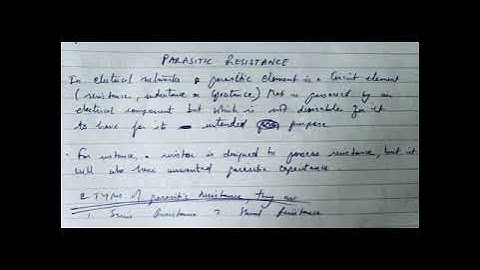 PARASITIC RESISTANCE
In electrical networks a parasitic element is a circuit element
(resistance, inductance or capacitance) that is possessed by an
electrical component but which is not desirable for it
to have for its intended purpose
• For instance, a resistor is designed to possess resistance, but it
will also have unwanted parasitic capacitance.
2 TYPES of parasitic resistance, they are
1. Series Resistance 2. Shunt Resistance